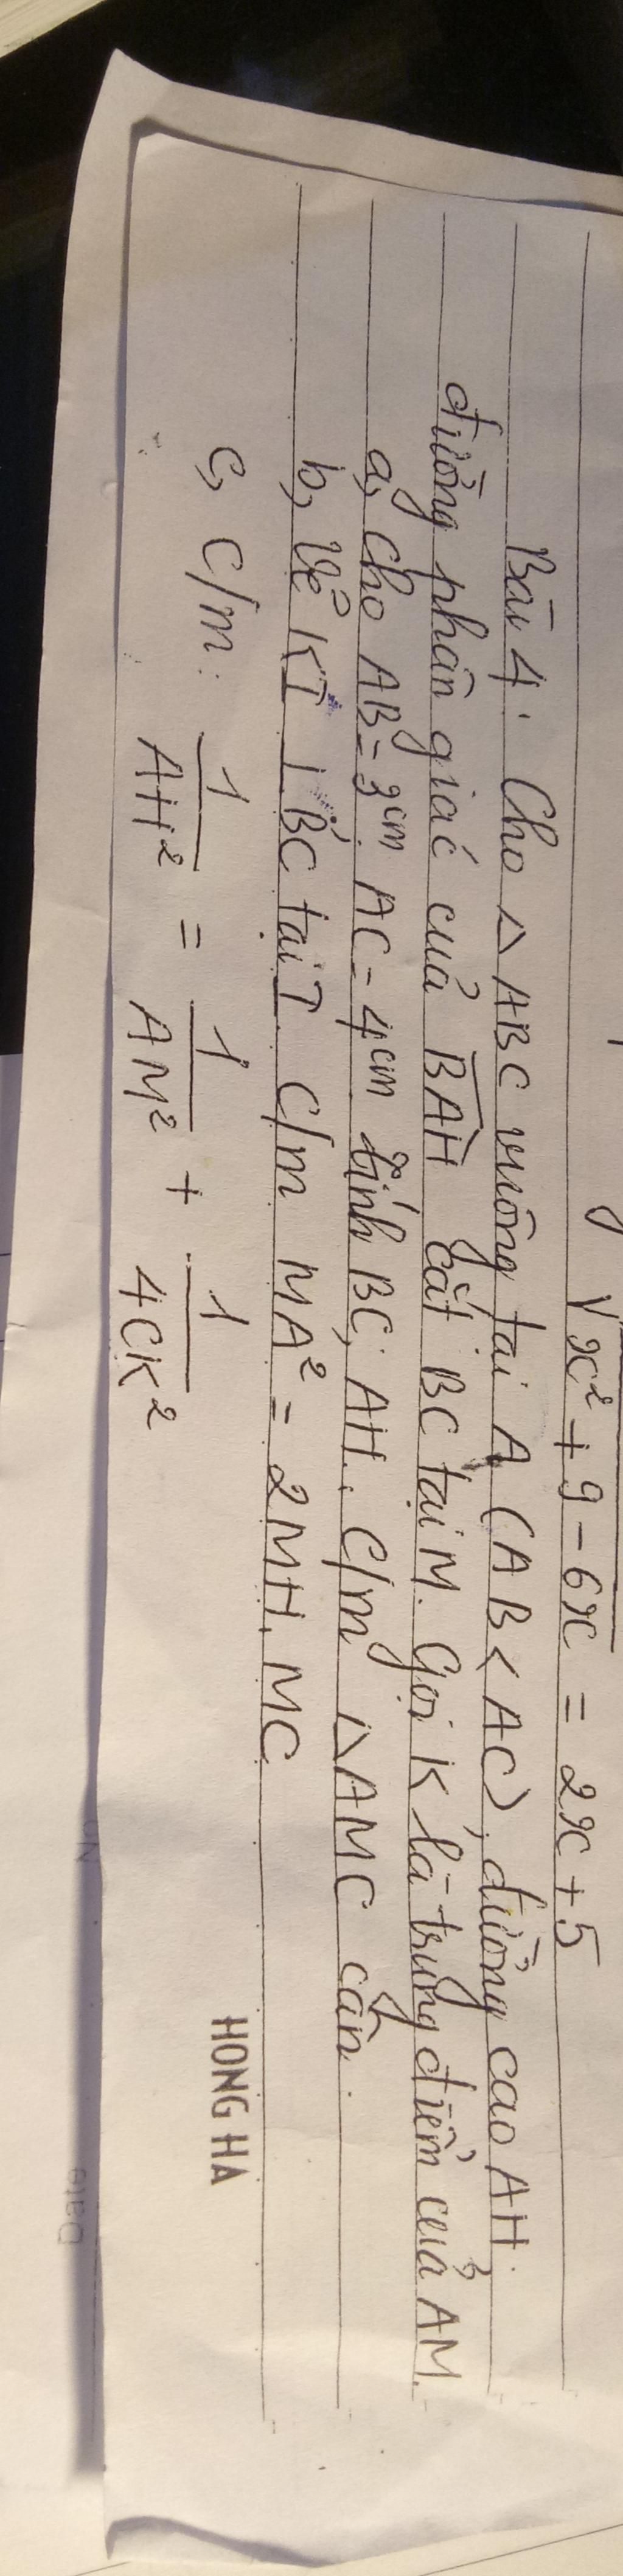 √x² + 9 - 6x = 2x + 5
Bài 4: Cho △ ABC vuông tại A (AB < AC), đường cao AH.
đường phân giác của BAH cắt BC tại M. Gọi K là trung điểm của AM.
a, Cho AB = 3cm. AC = 4cm tính BC, AH. C/m △AMC cân.
b, Vẽ KI ⊥ BC tại I. C/m MA² = 2MH.MC
c, C/m: 1/AH² = 1/AM² + 1/4CK²
HONG HA
No
Date